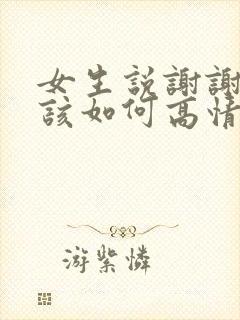 女生説謝謝
該如何高情
游紫憐